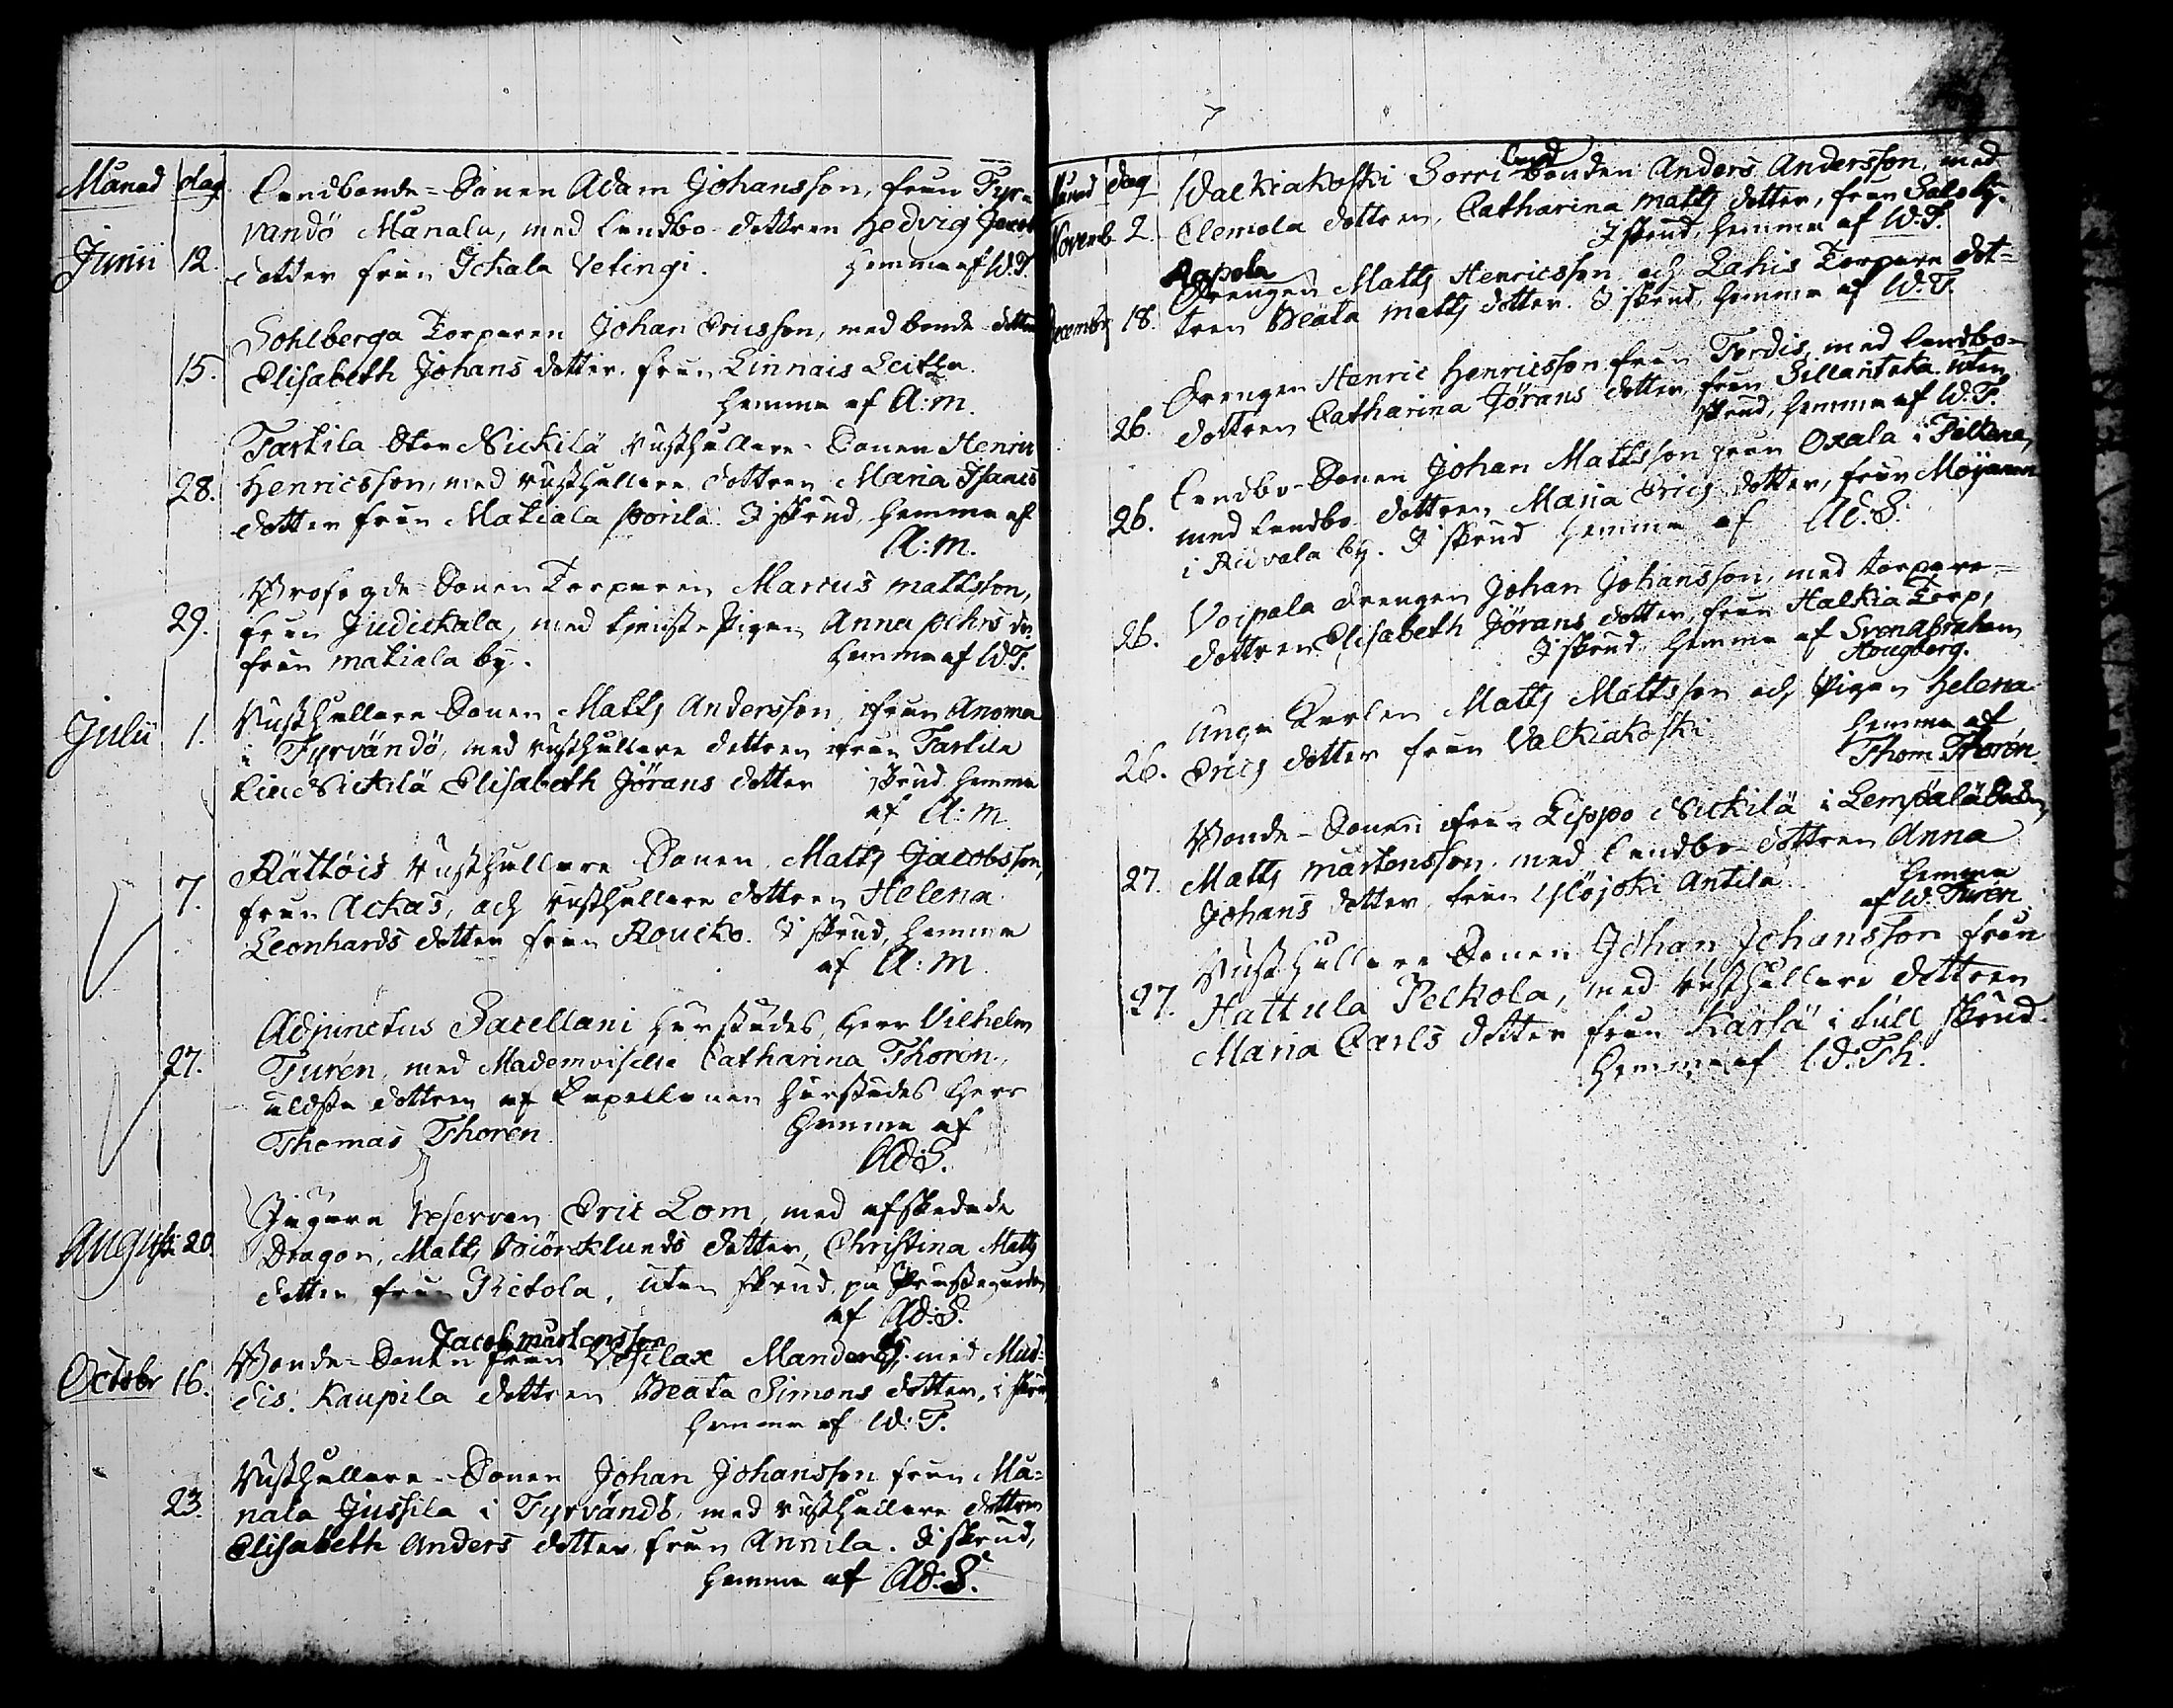 Månad dag. Landbonde-Sonen Adam Johansson, från Tyr-
vändö Månalu, med Landbo dottren Hedvig Jacobs
Junii 12. dotter från Ickala Vetingi. hemma af W.T.
Sohlberga Torparen Johan Ericsson, med bonde dottren
15. Elisabeth Johans dotter från Linnais Leitza.
hemma af A:M.
Tarkila Skou Nickilä rusthållare-Sonen Henric
28. Henricsson, med rusthållare dottren Maria Isaacs
dotter från Matiala Porila. I skrud, hemma af
A:M.
Profogde-Sonen Torparen Marcus Mattsson,
29. från Judickala, med tjenste Pigan Anna Pehrs dr.
från Matiala by. hemma af W.T.
Julii 1. Rusthållare Sonen Matts Andersson, ifrån Anoma
i Tyrvändö, med rusthållare dottren ifrån Tarkila
Nickilä Elisabeth Jörans dotter i skrud hemma
af A:M.
Rättöis rusthållare Sonen Matts Jacobsson,
7. från Ackas, och rusthållare dottren Helena
Leonhards dotter från Roucko. I skrud, hemma
af A:M.
Adjunctus Sacellani härstädes, Herr Vilhelm
27. Turén, med Mademoiselle Catharina Thorén,
äldsta dottren af Capellanen härstädes Herr
Thomas Thorén. hemma af
Ad:S.
Jägare reserven Eric Lom, med afskedade
Augusti 20. Dragon, Matts Biörcklunds dotter, Christina Matts
dotter från Ritola, utan skrud, på Prästegården
af Ad:S.
Jacob Mårtensson
Bonde-Sonen från Vesilax Manders, med Mus-
Octobr 16. dis. Kaupila dottren Beata Simons dotter, i skrud
hemma af W:T.
Rusthållare-Sonen Johan Johansson från Må-
23. nala Jussila i Tyrvändö, med rusthållare dottren
Elisabeth Anders dotter från Annila. I skrud,
hemma af Ad:S.
7
Månad dag Walkiakoski Sorri Landbonden Anders Andersson, med
Novemb 2. Clemola dottren, Catharina Matts dotter, från Salo by.
I skrud, hemma af W.T.
Rapola
Drengen Matts Henricsson och Lahis Torpare dot-
Decembr 18. tren Beata Matts dotter. I skrud, hemma af W.T.
Drengen Henric Henricsson från Terdis, med Landbo-
26. dottren Catharina Jörans dotter från Sillantaka utan
skrud, hemma af W.T.
Landbo-Sonen Johan Mattsson från Oxala i Pälkene,
26. med Landbo dottren Maria Erics dotter, från Moijanen
i Ridvala by. I skrud hemma af Ad.S.
Voipala drengen Johan Johansson, med torpare-
26. dottren Elisabeth Jörans dotter, från Halkia Torp,
I skrud, hemma af Sven Abraham
Hougberg.
Unga Karlen Matts Mattsson och Pigan Helena
26. Erics dotter från Valkiakoski. hemma af
Thom. Thorén.
Bonde-Sonen ifrån Lippo Nickilä i Lempälä Socken,
27. Matts Mårtensson, med Landbo dottren Anna
Johans dotter, från Ylöjoki Antila. hemma
af W. Turén.
Rusthållare Sonen Johan Johansson från
27. Hattula Pelkola, med rusthållare dottren
Maria Carls dotter från Kärlä i full skrud.
Hemma af W:Th.